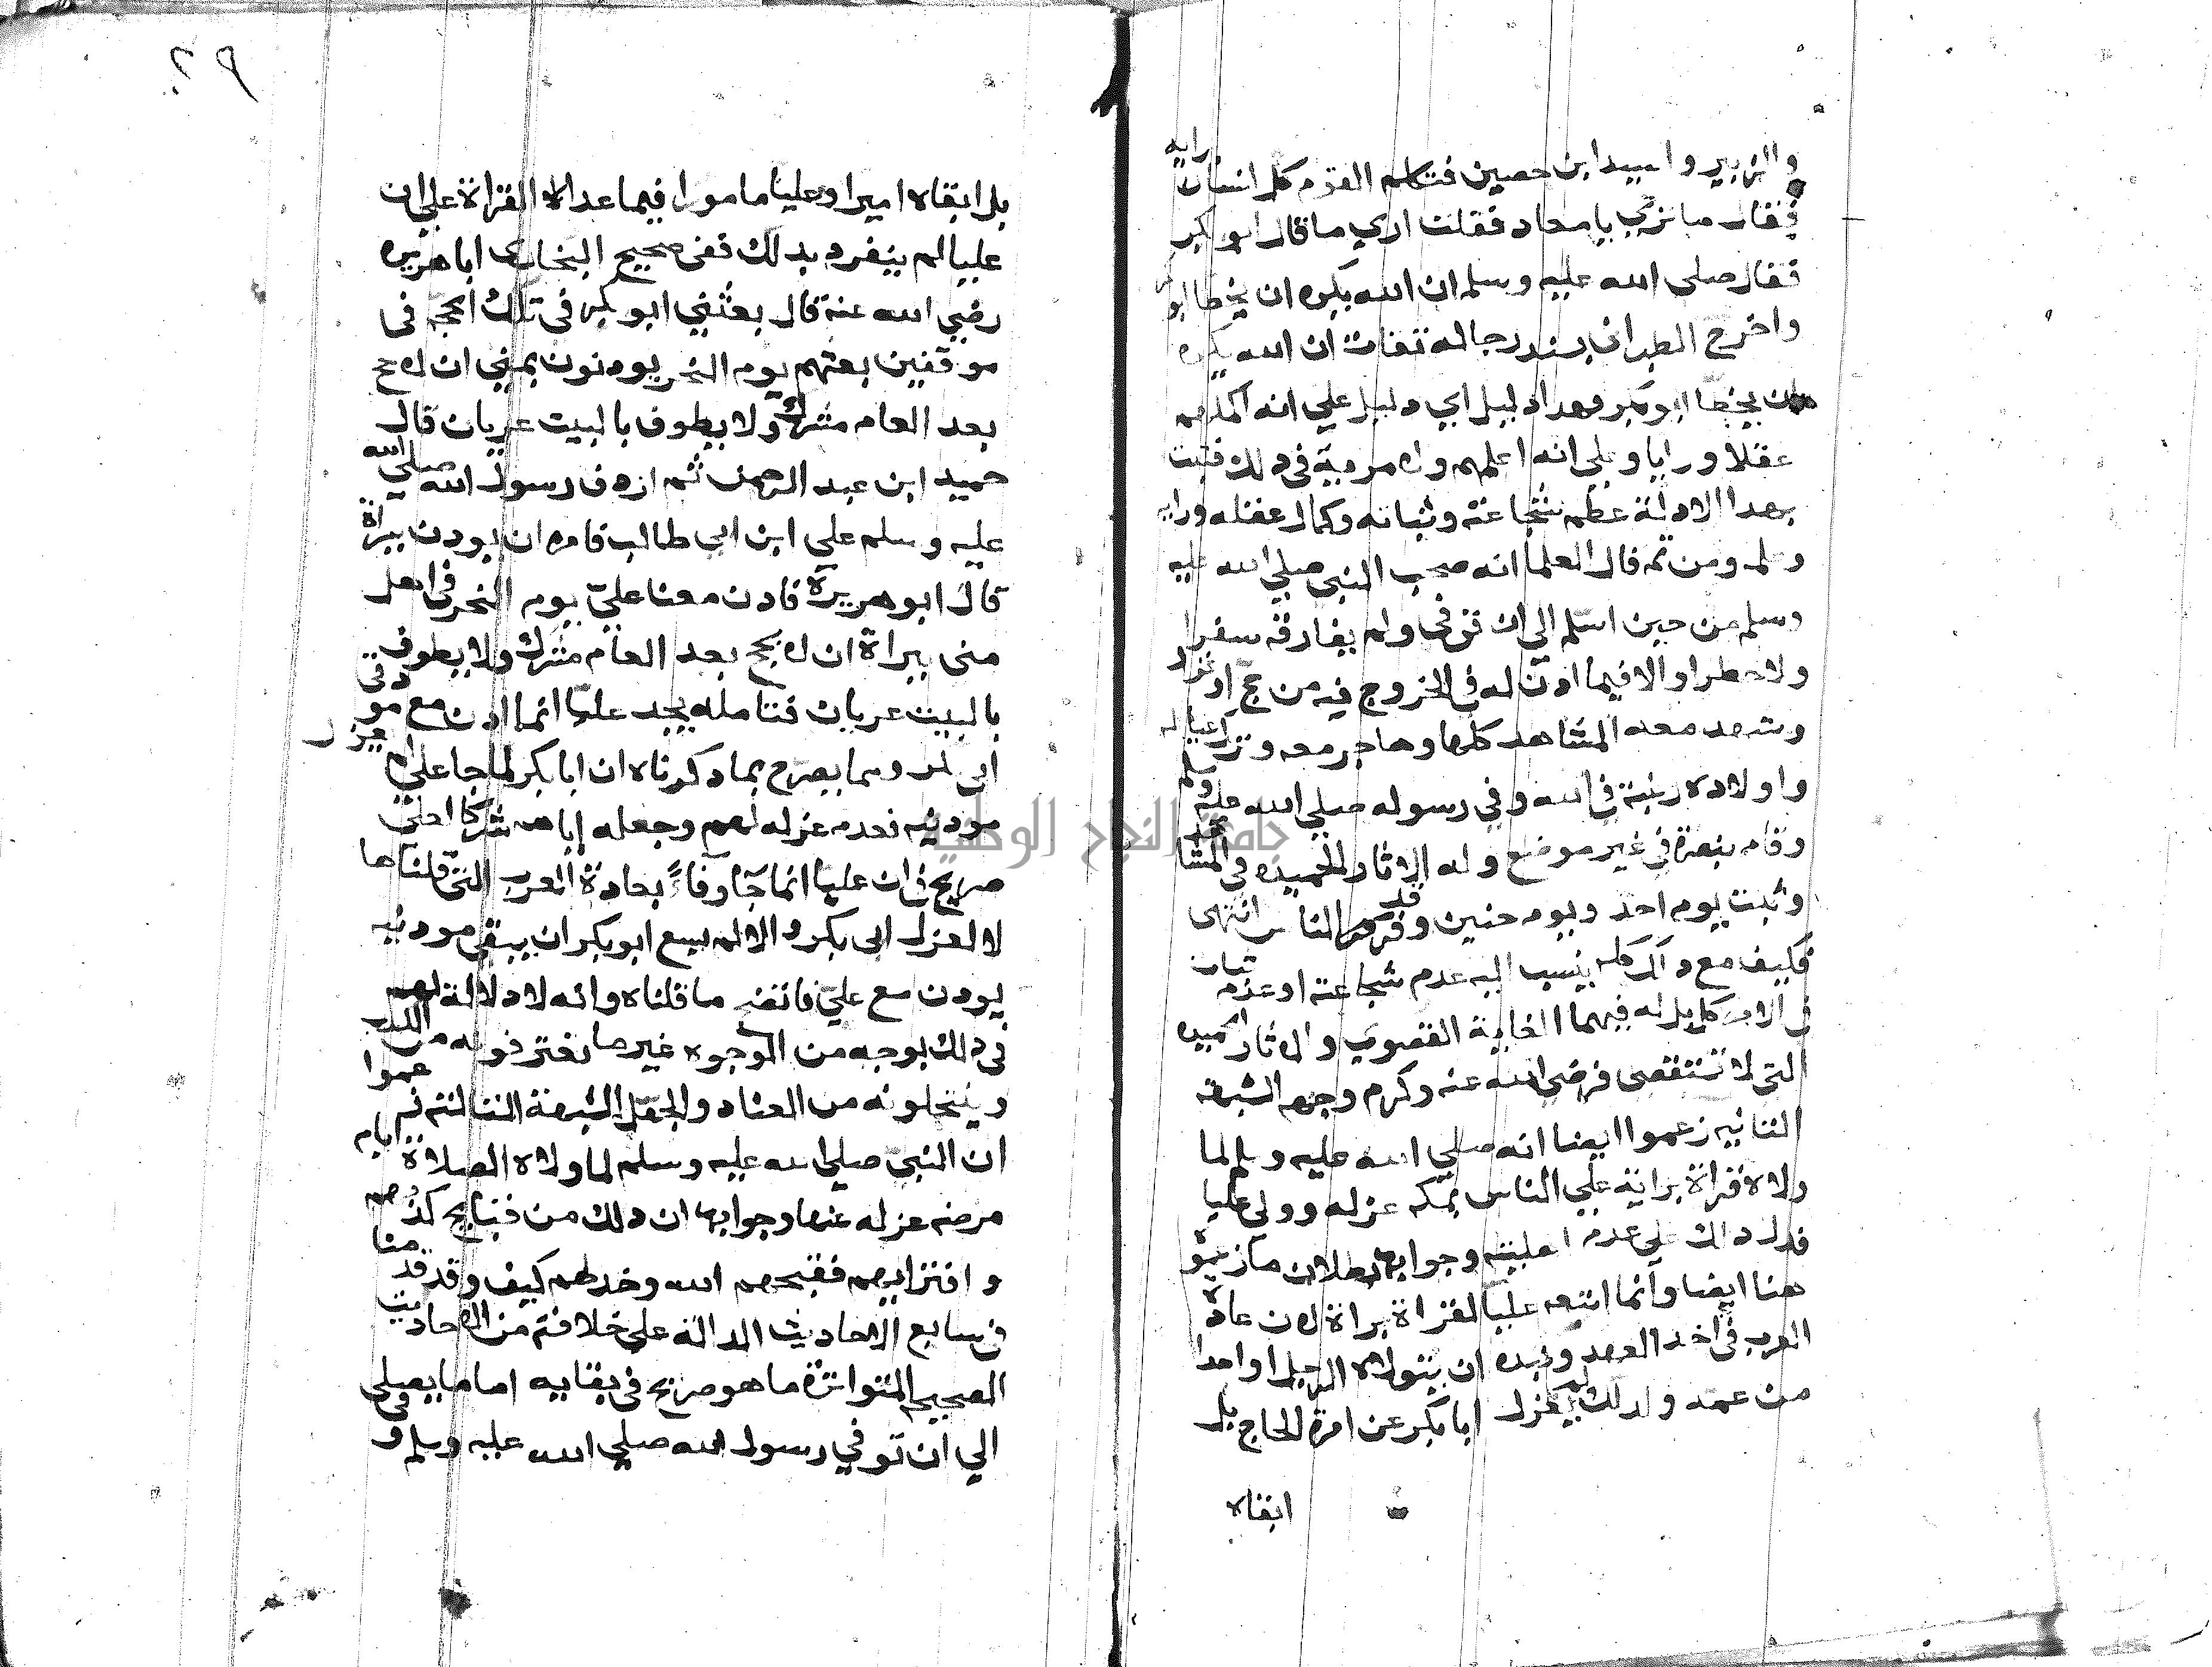 والزبير واسيد ابن حصين فتكلم القوم كل انسان برايه
فقال ما ترى يا معاد فقلت ارى ما قال ابو بكر
فقال صلى الله عليه وسلم ان الله يكره ان يخطا ابو بكر
واخرج الطبراني بسند رجاله ثقات ان الله يكره
ان يخطا ابو بكر وهدا دليل اي دليل على انه اكملهم
عقلا ورايا وعلى انه اعلمهم ولا مرية في دلك فثبت
بهدا الادلة عظم شجاعته وثباته وكمال عقله ورايه
وعلمه ومن ثم قال العلما انه صحب النبي صلى الله عليه
وسلم من حين اسلم الى ان توفى ولم يفارقه سفرا
ولا حضرا والا فيما ادن له في الخروج فيه من حج او غزو
وشهد معه المشاهد كلها وهاجر معه وترك عياله
واولاده رغبة في الله وفي رسوله صلى الله عليه وسلم
وقام بنصرة في غير موضع وله الاثار الحميده في المشاهد
وثبت يوم احد ويوم حنين وقد فر الناس انتهى
فكيف مع دلك كله ينسب اليه عدم شجاعته او عدم ثبات
في الامر كلا بل له فيهما الغاية القصوى والاثار الحميده
التى لا تستقصى فرضى الله عنه وكرم وجهه الشبهة
الثانيه زعموا ايضا انه صلى الله عليه وسلم لما
ولاه قراة براية على الناس بمكه عزله وولى عليا
فدل دالك على عدم اهليته وجوابها بطلان ما زعموه
هنا ايضا وانما اتبعه عليا لقراة براة لان عادة
العرب في اخد العهد ونبده ان يتولاه الرجل او احدا
من عمه ولدلك لم يعزل ابا بكر عن امرة الحاج بل
ابقاه
٢٩
بل ابقاه اميرا وعليا مامورا فيما عدا الا القراة على ان
عليا لم ينفرد بدلك ففى صحيح البخارى ابا هريره
رضي الله عنه قال بعثني ابو بكر فى تلك الحجه فى
موقنين بعثهم يوم النحر يودنون بمنى ان لا يحج
بعد العام مشرك ولا يطوف بالبيت عريان قال
حميد ابن عبد الرحمن ثم اردف رسول الله صلى الله
عليه وسلم على ابن ابي طالب فامره ان يودن ببراة
قال ابو هريرة فادن معنا علي يوم النحر فى اهل
منى ببراة ان لا يحج بعد العام مشرك ولا يطوف
بالبيت عريان فتامله يجد عليا انما ادن مع مودنى
ابى بكر ومما يصرح بما دكرناه ان ابا بكر لما جا على لم يعزل
مودنيه فعدم عزله لهم وجعله اياهم شركا لعلي
صريح في ان عليا انما جا وفاءً بعادة العرب التى قلناها
لا لعزل ابى بكر والا لم يسع ابو بكر ان يبقى مودنيه
يودن مع علي فاتضح ما قلناه وانه لا دلالة لهم
في دلك بوجه من الوجوه غير ما يفترونه من الكدب
وينتحلونه من العناد والجهل الشبهة الثالثة زعموا
ان النبى صلى الله عليه وسلم لما ولاه الصلاة ايام
مرضه عزله عنها وجوابها ان دلك من قبايح كذبهم
وافترايهم فقبحهم الله وخدلهم كيف وقد قدمنا
في سابع الاحاديث الدالة على خلافته من الاحاديث
الصحيح المتواترة ما هو صريح فى بقايه اماما يصلى
الي ان توفي رسول الله صلى الله عليه وسلم وفى
جامعة النجاح الوطنية